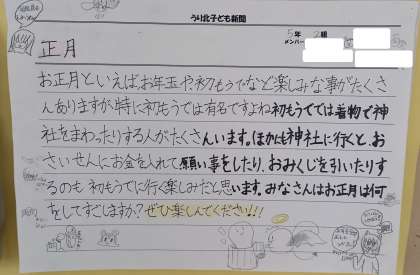 うり北子ども新聞
5年 2組
メンバー
正月
お正月といえば、お年玉や、初もうでなど楽しみな事がたくさ
んありますが、特に初もうでは有名ですよね初もうででは着物で神
社をまわったりする人がたくさんいます。ほかにも神社に行くと、お
さいせんにお金を入れて願い事をしたり、おみくじを引いたりす
るのも 初もうでに行く楽しみだと思います。みなさんはお正月は何
をしてすごしますか？ぜひ楽しんでください!!